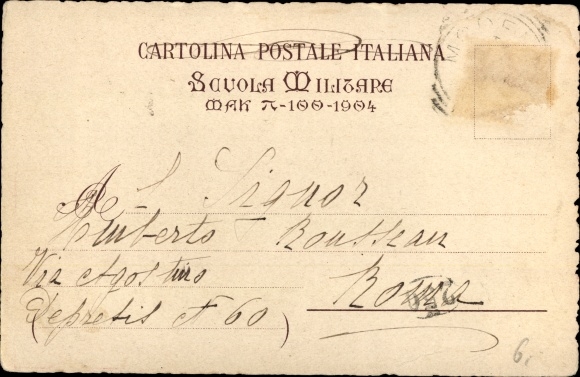 CARTOLINA POSTALE ITALIANA
SCUOLA MILITARE
MAK π-100-1904
MODEN
A S. Signor
Umberto Rousseau
Via Agostino
Depretis N 60)
Roma
6,